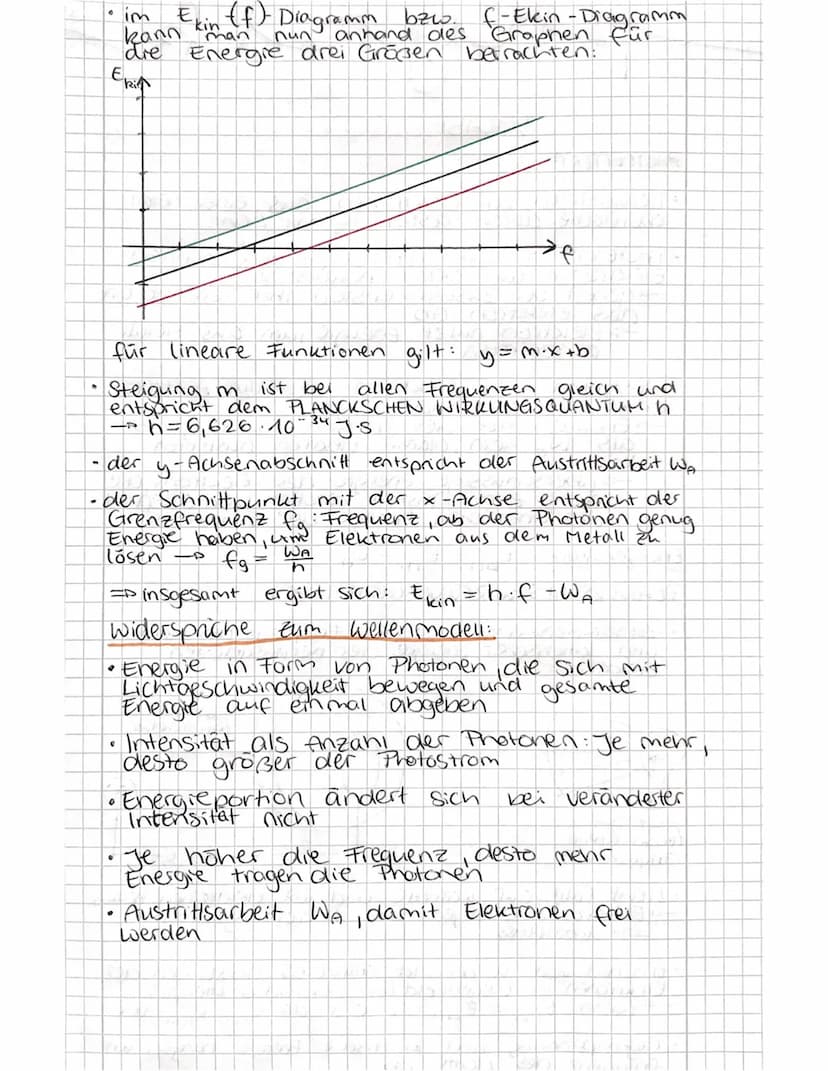 • im Ekin (f)-Diagramm bzw. f-Ekin-Diagramm
kann man nun anhand des Graphen für
die Energie drei Größen betrachten:
Ekin
f
für lineare Funktionen gilt: y = m·x+b
• Steigung m ist bei allen Frequenzen gleich und
entspricht dem PLANCKSCHEN WIRKUNGSQUANTUM h
→ h = 6,626·10⁻³⁴ J·s
- der y-Achsenabschnitt entspricht der Austrittsarbeit WA
• der Schnittpunkt mit der x-Achse entspricht der
Grenzfrequenz fg: Frequenz, ab der Photonen genug
Energie haben, um Elektronen aus dem Metall zu
lösen → fg = WA/h
⇒ insgesamt ergibt sich: Ekin = h·f - WA
Widersprüche zum Wellenmodell:
• Energie in Form von Photonen, die sich mit
Lichtgeschwindigkeit bewegen und gesamte
Energie auf einmal abgeben
• Intensität als Anzahl der Photonen: Je mehr,
desto größer der Photostrom
• Energieportion ändert sich bei veränderter
Intensität nicht
• Je höher die Frequenz, desto mehr
Energie tragen die Photonen
• Austrittsarbeit WA, damit Elektronen frei
werden